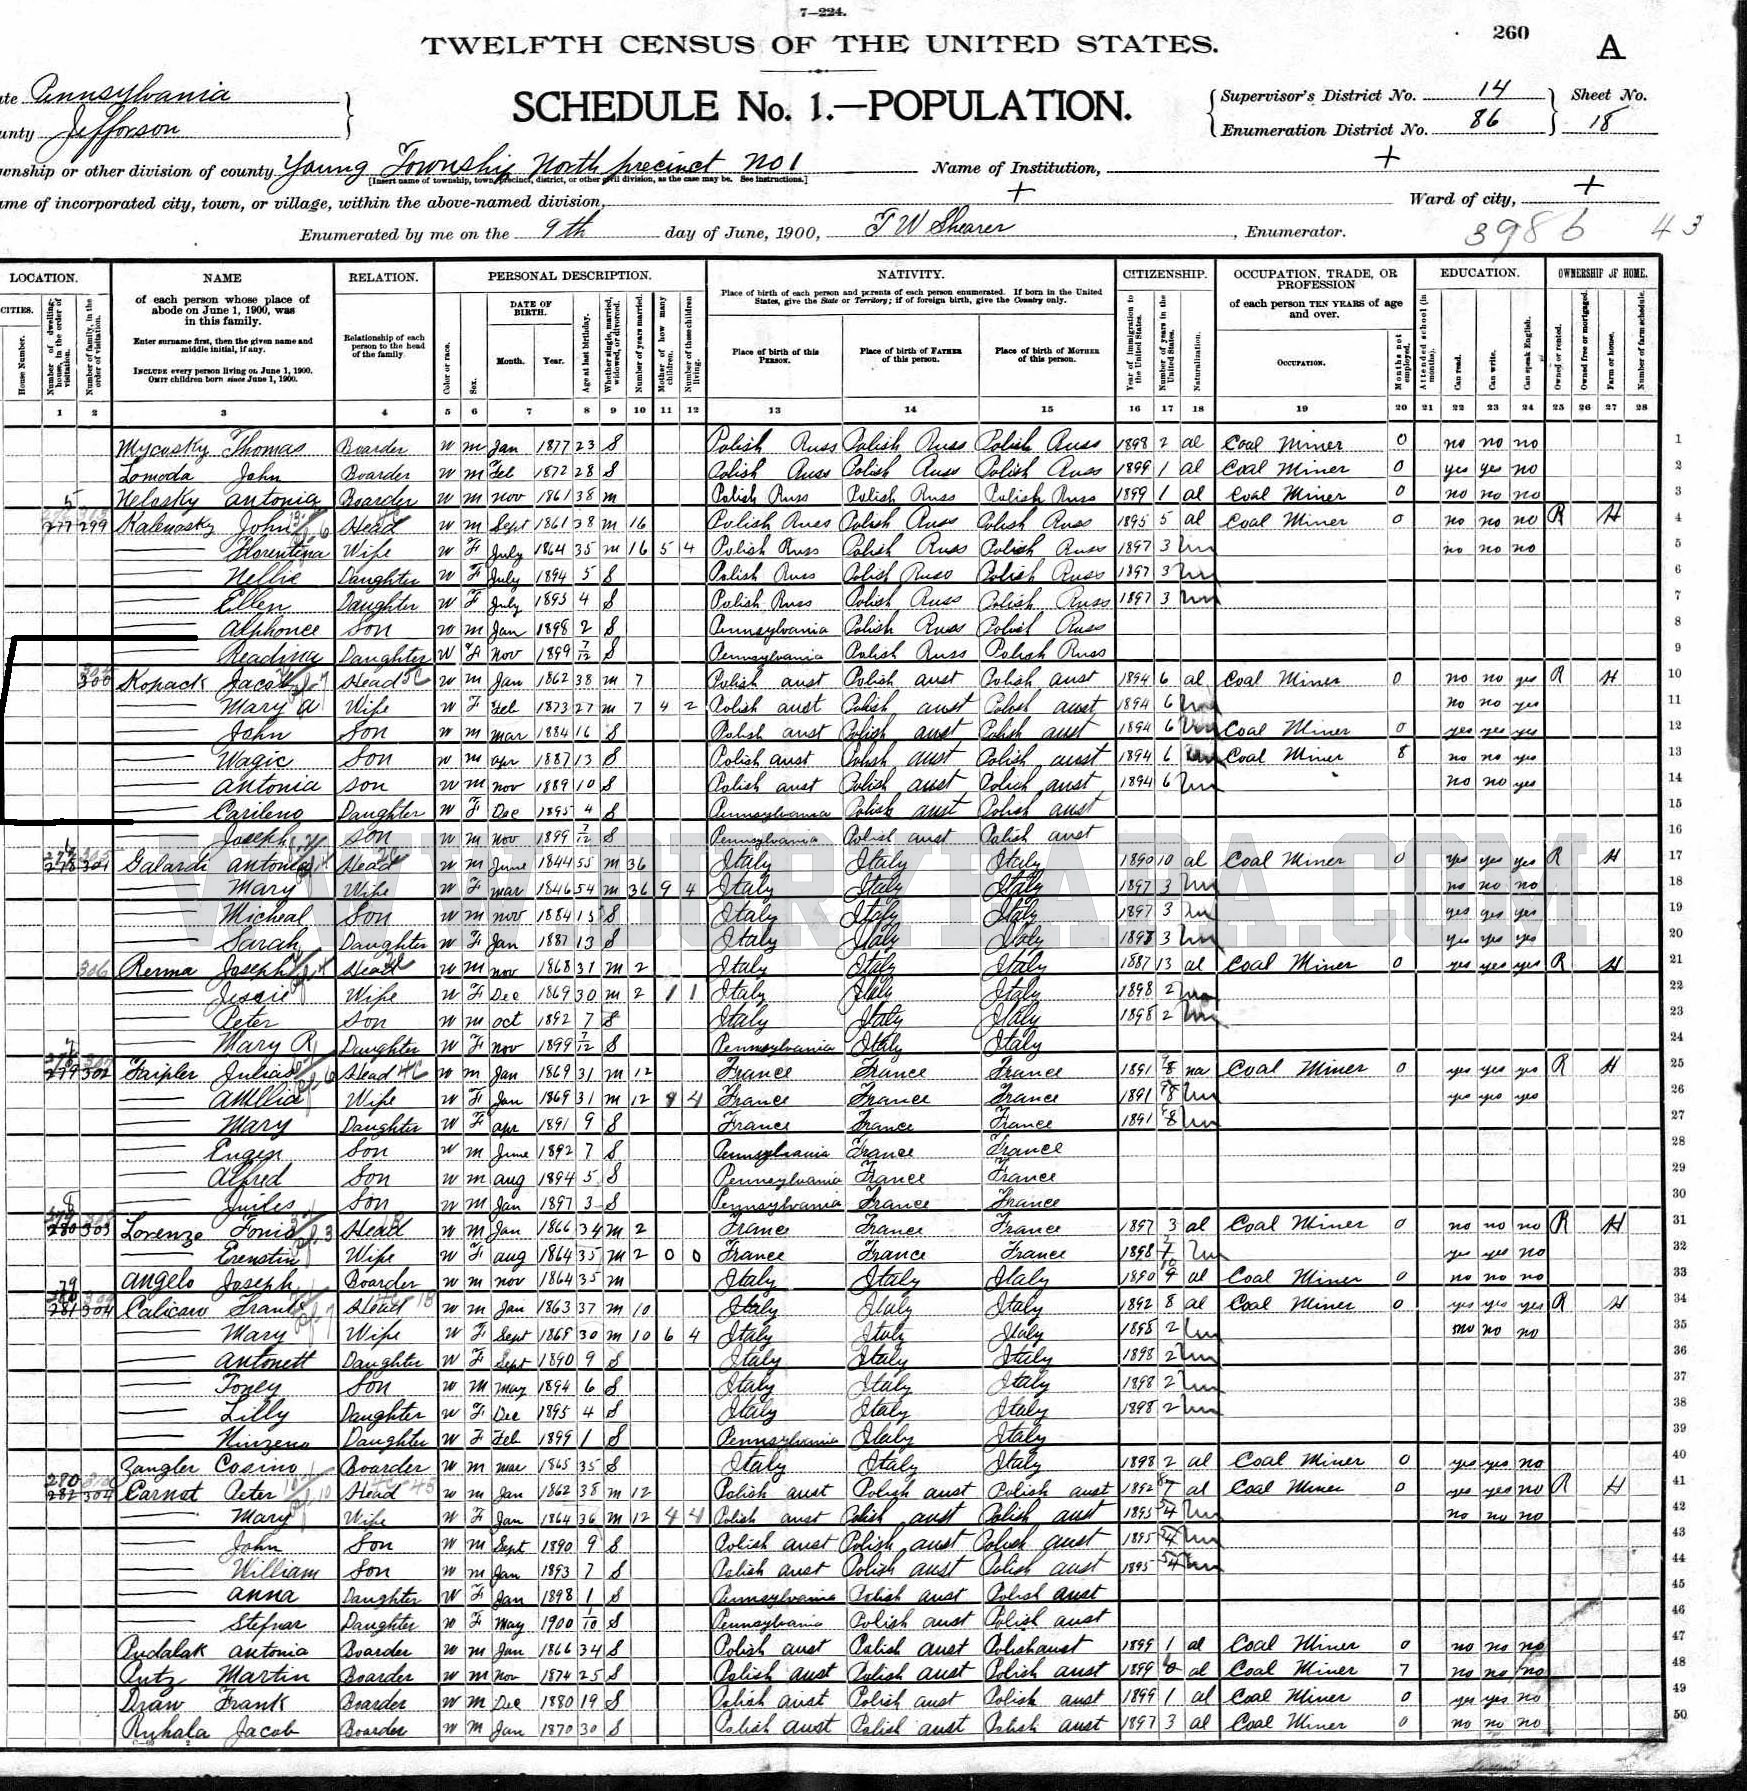 7—224.
260
A
TWELFTH CENSUS OF THE UNITED STATES.
ate Pennsylvania
SCHEDULE No. 1.—POPULATION.
Supervisor's District No. 14
Sheet No.
unty Jefferson
Enumeration District No. 86
18
wnship or other division of county Young Township North precinct No 1
Name of Institution, +
[Insert name of township, town, precinct, district, or other civil division, as the case may be. See instructions.]
ame of incorporated city, town, or village, within the above-named division, +
Ward of city, +
Enumerated by me on the 9th day of June, 1900, T W Shearer, Enumerator.
3986 43
LOCATION. NAME RELATION. PERSONAL DESCRIPTION. NATIVITY. CITIZENSHIP. OCCUPATION, TRADE, OR PROFESSION EDUCATION. OWNERSHIP OF HOME.
CITIES.
House Number.
Number of dwelling-house, in the order of visitation.
Number of family, in the order of visitation.
of each person whose place of abode on June 1, 1900, was in this family.
Enter surname first, then the given name and middle initial, if any.
INCLUDE every person living on June 1, 1900.
OMIT children born since June 1, 1900.
Relationship of each person to the head of the family.
Color or race.
Sex.
DATE OF BIRTH.
Month. Year.
Age at last birthday.
Whether single, married, widowed, or divorced.
Number of years married.
Mother of how many children.
Number of these children living.
Place of birth of each person and parents of each person enumerated. If born in the United States, give the State or Territory; if of foreign birth, give the Country only.
Place of birth of this PERSON.
Place of birth of FATHER of this person.
Place of birth of MOTHER of this person.
Year of immigration to the United States.
Number of years in the United States.
Naturalization.
of each person TEN YEARS of age and over.
OCCUPATION.
Months not employed.
Attended school (in months).
Can read.
Can write.
Can speak English.
Owned or rented.
Owned free or mortgaged.
Farm or house.
Number of farm schedule.
1 2 3 4 5 6 7 8 9 10 11 12 13 14 15 16 17 18 19 20 21 22 23 24 25 26 27 28
Mycosky Thomas Boarder W M Jan 1877 23 S Polish Russ Polish Russ Polish Russ 1898 2 al Coal Miner 0 no no no 1
Lomoda John Boarder W M Feb 1872 28 S Polish Russ Polish Russ Polish Russ 1899 1 al Coal Miner 0 yes yes no 2
Nelosky Antonia Boarder W M Nov 1861 38 M Polish Russ Polish Russ Polish Russ 1899 1 al Coal Miner 0 no no no 3
277 299 Kalenosky John Head W M Sept 1861 38 M 16 Polish Russ Polish Russ Polish Russ 1895 5 al Coal Miner 0 no no no R H 4
Florentina Wife W F July 1864 35 M 16 5 4 Polish Russ Polish Russ Polish Russ 1897 3 no no no 5
Nellie Daughter W F July 1894 5 S Polish Russ Polish Russ Polish Russ 1897 3 6
Ellen Daughter W F July 1895 4 S Polish Russ Polish Russ Polish Russ 1897 3 7
Alphonce Son W M Jan 1898 2 S Pennsylvania Polish Russ Polish Russ 8
Readina Daughter W F Nov 1899 7/12 S Pennsylvania Polish Russ Polish Russ 9
300 Kopack Jacob Head W M Jan 1862 38 M 7 Polish Aust Polish Aust Polish Aust 1894 6 al Coal Miner 0 no no yes R H 10
Mary A Wife W F Feb 1873 27 M 7 4 2 Polish Aust Polish Aust Polish Aust 1894 6 no no yes 11
John Son W M Mar 1884 16 S Polish Aust Polish Aust Polish Aust 1894 6 Coal Miner 0 yes yes yes 12
Wagic Son W M Apr 1887 13 S Polish Aust Polish Aust Polish Aust 1894 6 Coal Miner 8 no no yes 13
Antonia Son W M Nov 1889 10 S Polish Aust Polish Aust Polish Aust 1894 6 no no yes 14
Carileno Daughter W F Dec 1895 4 S Pennsylvania Polish Aust Polish Aust 15
Joseph Son W M Nov 1899 7/12 S Pennsylvania Polish Aust Polish Aust 16
278 301 Galardi Antonia Head W M June 1844 55 M 36 Italy Italy Italy 1890 10 al Coal Miner 0 yes yes yes R H 17
Mary Wife W F Mar 1846 54 M 36 9 4 Italy Italy Italy 1897 3 no no no 18
Micheal Son W M Nov 1884 15 S Italy Italy Italy 1897 3 yes yes yes 19
Sarah Daughter W F Jan 1887 13 S Italy Italy Italy 1897 3 yes yes yes 20
306 Rerma Joseph Head W M Nov 1868 31 M 2 Italy Italy Italy 1887 13 al Coal Miner 0 yes yes yes R H 21
Jessie Wife W F Dec 1869 30 M 2 1 1 Italy Italy Italy 1898 2 22
Peter Son W M Oct 1892 7 S Italy Italy Italy 1898 2 23
Mary R Daughter W F Nov 1899 7/12 S Pennsylvania Italy Italy 24
279 302 Faipler Julias Head W M Jan 1869 31 M 12 France France France 1891 8 na Coal Miner 0 yes yes yes R H 25
Amllia Wife W F Jan 1869 31 M 12 4 France France France 1891 8 yes yes yes 26
Mary Daughter W F Apr 1891 9 S France France France 1891 8 27
Eugen Son W M June 1892 7 S Pennsylvania France France 28
Alfred Son W M Aug 1894 5 S Pennsylvania France France 29
Juiles Son W M Jan 1897 3 S Pennsylvania France France 30
280 303 Lorenzo Fonis Head W M Jan 1866 34 M 2 France France France 1897 3 al Coal Miner 0 no no no R H 31
Erenstin Wife W F Aug 1864 35 M 2 0 0 France France France 1898 yes yes no 32
Angelo Joseph Boarder W M Nov 1864 35 M Italy Italy Italy 1890 9 al Coal Miner 0 no no no 33
281 304 Calicaro Frank Head W M Jan 1863 37 M 10 Italy Italy Italy 1892 8 al Coal Miner 0 yes yes yes R H 34
Mary Wife W F Sept 1869 30 M 10 6 4 Italy Italy Italy 1898 2 no no no 35
Antonett Daughter W F Sept 1890 9 S Italy Italy Italy 1898 2 36
Toney Son W M May 1894 6 S Italy Italy Italy 1898 2 37
Lilly Daughter W F Dec 1895 4 S Italy Italy Italy 1898 2 38
Ninzeno Daughter W F Feb 1899 1 S Pennsylvania Italy Italy 39
Zangler Cosino Boarder W M Mar 1865 35 S Italy Italy Italy 1898 2 al Coal Miner 0 yes yes no 40
282 304 Carnot Peter Head W M Jan 1862 38 M 12 Polish Aust Polish Aust Polish Aust 1892 7 al Coal Miner 0 yes yes no R H 41
Mary Wife W F Jan 1864 36 M 12 4 4 Polish Aust Polish Aust Polish Aust 1895 4 no no no 42
John Son W M Sept 1890 9 S Polish Aust Polish Aust Polish Aust 1895 4 43
William Son W M Jan 1893 7 S Polish Aust Polish Aust Polish Aust 1895 4 44
Anna Daughter W F Jan 1898 1 S Pennsylvania Polish Aust Polish Aust 45
Stefnar Daughter W F May 1900 1/10 S Pennsylvania Polish Aust Polish Aust 46
Pudalak Antonia Boarder W M Jan 1866 34 S Polish Aust Polish Aust Polish Aust 1899 1 al Coal Miner 0 no no no 47
Putz Martin Boarder W M Nov 1874 25 S Polish Aust Polish Aust Polish Aust 1899 0 al Coal Miner 7 no no no 48
Draw Frank Boarder W M Dec 1880 19 S Polish Aust Polish Aust Polish Aust 1899 1 al Coal Miner 0 yes yes no 49
Ryhala Jacob Boarder W M Jan 1870 30 S Polish Aust Polish Aust Polish Aust 1897 3 al Coal Miner 0 no no no 50